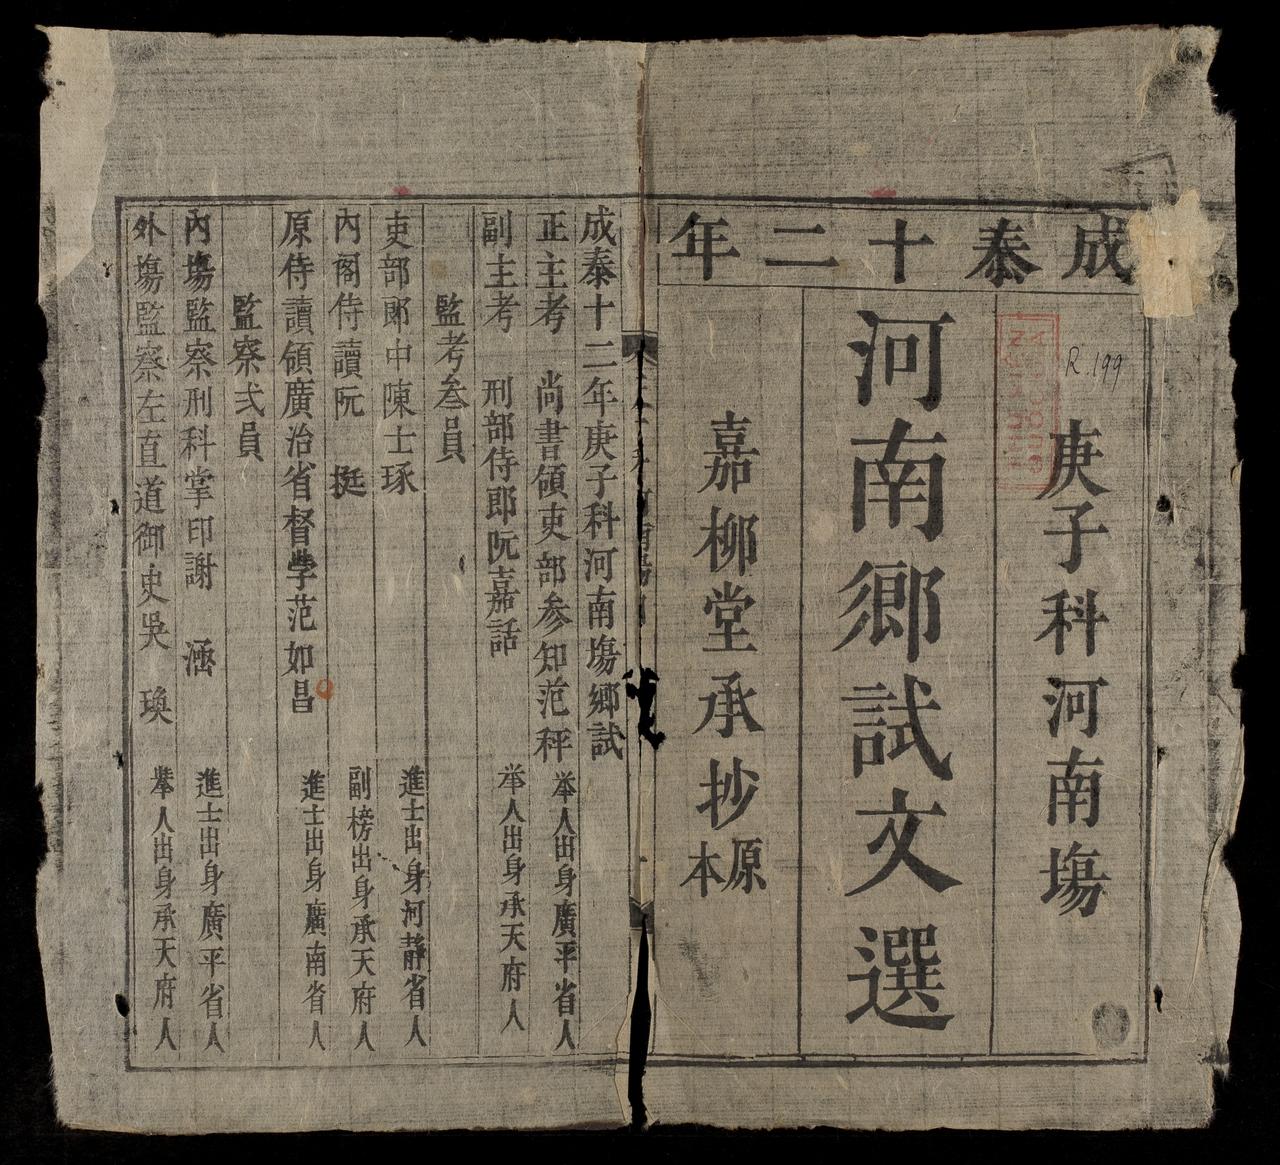 成泰十二年
R.199
庚子科河南場
河南鄉試文選
嘉柳堂承抄原本
成泰十二年庚子科河南塲鄉試
正主考 尚書領吏部参知范秤 举人出身廣平省人
副主考 刑部侍郎阮嘉話 举人出身承天府人
監考叁員
吏部郎中陳士琢 進士出身河靜省人
內阁侍讀阮 挺 副榜出身承天府人
原侍讀領廣治省督學范如昌 進士出身廣南省人
監察弍員
內塲監察刑科掌印謝 涵 進士出身廣平省人
外塲監察左直道御史吳 瑍 舉人出身承天府人